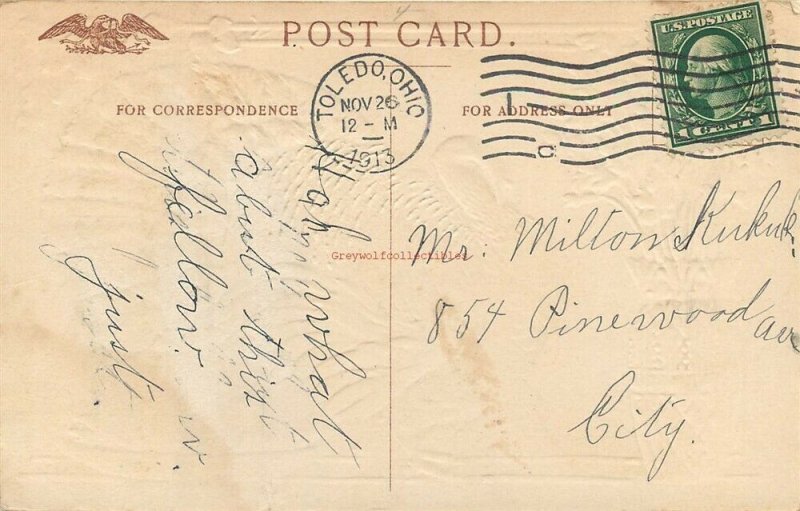 POST CARD.
FOR CORRESPONDENCE
FOR ADDRESS ONLY
TOLEDO, OHIO
NOV 26
12 - M
1913
U.S. POSTAGE
1 CENT 1
what
about this
fellow.
just
Greywolfcollectibles
Mr. Milton Kukuk
854 Pinewood Ave
City.